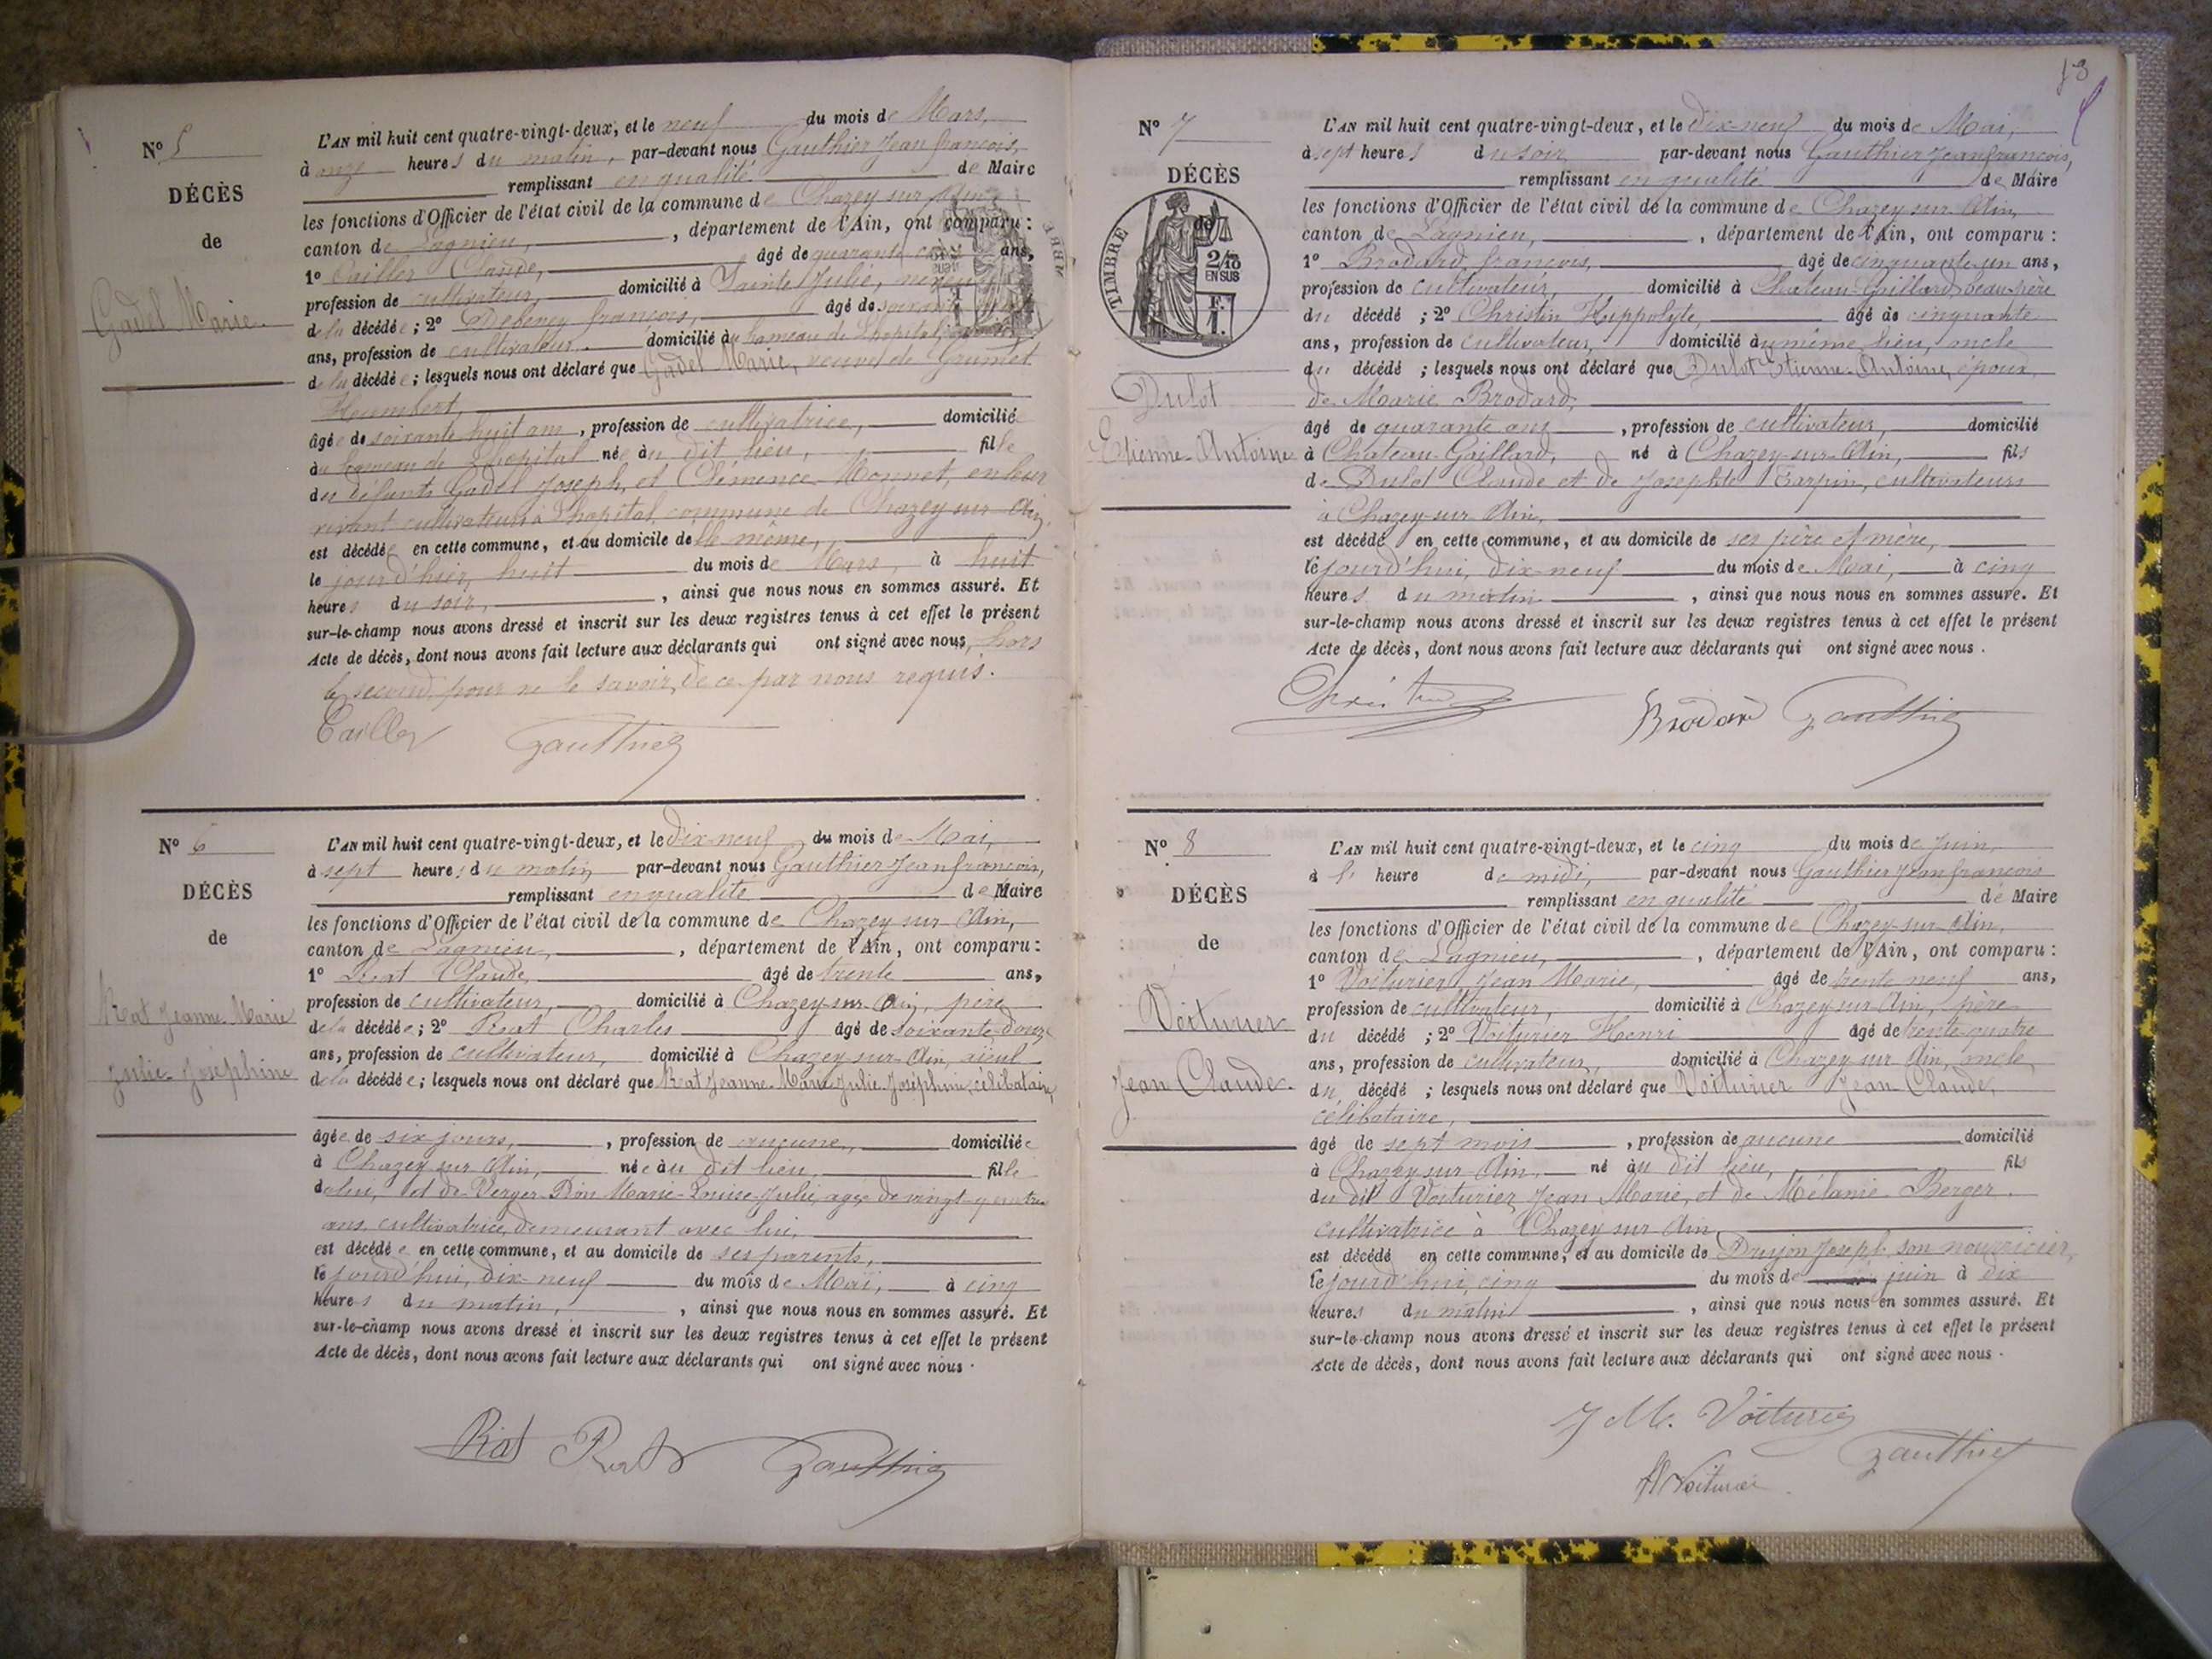 N° 5
DÉCÈS
de
Gadel Marie
L'AN mil huit cent quatre-vingt-deux, et le neuf du mois de Mars,
à onze heures du matin, par-devant nous Gauthier Jean françois,
remplissant en qualité de Maire
les fonctions d'Officier de l'état civil de la commune de Chazey sur Ain
canton de Lagnieu, , département de l'Ain, ont comparu :
1° Cailler Claude, âgé de quarante ans,
profession de cultivateur, domicilié à Sainte Julie, neveu
de la décédée ; 2° Debeney françois, âgé de soixante
ans, profession de cultivateur. domicilié au hameau de Lhopital,
de la décédée ; lesquels nous ont déclaré que Gadel Marie, veuve de Grumet
Heumbert,
âgée de soixante huit ans, profession de cultivatrice, domicilié
au hameau de Lhopital née au dit lieu, fille
des défunts Gadel Joseph, et Clémence Monnet, en leur
vivant cultivateurs à Lhopital, commune de Chazey sur Ain,
est décédée en cette commune, et au domicile de elle même,
le jourd'hier, huit du mois de Mars, à huit
heures du soir, , ainsi que nous nous en sommes assuré. Et
sur-le-champ nous avons dressé et inscrit sur les deux registres tenus à cet effet le présent
Acte de décès, dont nous avons fait lecture aux déclarants qui ont signé avec nous, hors
le second, pour ne le savoir, de ce par nous requis.
Cailler Gauthier
N° 6
DÉCÈS
de
Rat Jeanne Marie
Julie Joséphine
L'AN mil huit cent quatre-vingt-deux, et le dix-neuf du mois de Mai,
à sept heures du matin, par-devant nous Gauthier Jean françois,
remplissant en qualité de Maire
les fonctions d'Officier de l'état civil de la commune de Chazey sur Ain,
canton de Lagnieu, , département de l'Ain, ont comparu :
1° Rat Claude, âgé de trente ans,
profession de cultivateur, domicilié à Chazey-sur-Ain, père
de la décédée ; 2° Rat Charles âgé de soixante-douze
ans, profession de cultivateur, domicilié à Chazey-sur-Ain, aïeul
de la décédée ; lesquels nous ont déclaré que Rat Jeanne Marie Julie Joséphine, célibataire,
âgée de six jours, , profession de aucune, domiciliée
à Chazey sur Ain, née au dit lieu, fille
de lui, et de Verger-Dion Marie-Louise-Julie, agée de vingt-quatre
ans, cultivatrice, demeurant avec lui,
est décédée en cette commune, et au domicile de ses parents,
le jourd'hui, dix-neuf du mois de Mai, à cinq
heures du matin, , ainsi que nous nous en sommes assuré. Et
sur-le-champ nous avons dressé et inscrit sur les deux registres tenus à cet effet le présent
Acte de décès, dont nous avons fait lecture aux déclarants qui ont signé avec nous.
Rat Rat Gauthier
13
N° 7
DÉCÈS
de
TIMBRE
2/10
EN SUS
Dulot
Etienne-Antoine
L'AN mil huit cent quatre-vingt-deux, et le dix-neuf du mois de Mai,
à sept heures du soir, par-devant nous Gauthier Jean françois,
remplissant en qualité de Maire
les fonctions d'Officier de l'état civil de la commune de Chazey-sur-Ain,
canton de Lagnieu, , département de l'Ain, ont comparu :
1° Brodard françois, âgé de cinquante un ans,
profession de cultivateur, domicilié à Chateau-Gaillard, beau-père
du décédé ; 2° Christin Huppolyte, âgé de cinquante
ans, profession de cultivateur, domicilié au même lieu, oncle
du décédé ; lesquels nous ont déclaré que Dulot Etienne-Antoine, époux
de Marie Brodard,
âgé de quarante ans , profession de cultivateur, domicilié
à Chateau-Gaillard, né à Chazey-sur-Ain, fils
de Dulot Claude et de Josephte Tarpin, cultivateurs
à Chazey-sur-Ain,
est décédé en cette commune, et au domicile de ses père et mère,
le jourd'hui, dix-neuf du mois de Mai, à cinq
heures du matin , ainsi que nous nous en sommes assuré. Et
sur-le-champ nous avons dressé et inscrit sur les deux registres tenus à cet effet le présent
Acte de décès, dont nous avons fait lecture aux déclarants qui ont signé avec nous.
Christin Brodard Gauthier
N° 8
DÉCÈS
de
Voiturier
Jean Claude.
L'AN mil huit cent quatre-vingt-deux, et le cinq du mois de Juin,
à heure de midi, par-devant nous Gauthier Jean françois
remplissant en qualité de Maire
les fonctions d'Officier de l'état civil de la commune de Chazey-sur-Ain,
canton de Lagnieu, , département de l'Ain, ont comparu :
1° Voiturier Jean Marie, âgé de trente neuf ans,
profession de cultivateur, domicilié à Chazey sur Ain, père
du décédé ; 2° Voiturier Henri âgé de trente-quatre
ans, profession de cultivateur, domicilié à Chazey sur Ain, oncle
du décédé ; lesquels nous ont déclaré que Voiturier Jean Claude,
célibataire,
âgé de sept mois , profession de aucune domicilié
à Chazey sur Ain, né au dit lieu, fils
du dit Voiturier Jean Marie, et de Mélanie Berger.
cultivatrice à Chazey sur Ain
est décédé en cette commune, et au domicile de Dujon Joseph, son nourricier,
le jourd'hui, cinq du mois de juin à dix
heures du matin , ainsi que nous nous en sommes assuré. Et
sur-le-champ nous avons dressé et inscrit sur les deux registres tenus à cet effet le présent
Acte de décès, dont nous avons fait lecture aux déclarants qui ont signé avec nous.
J M. Voiturier
Gauthier
H Voiturier